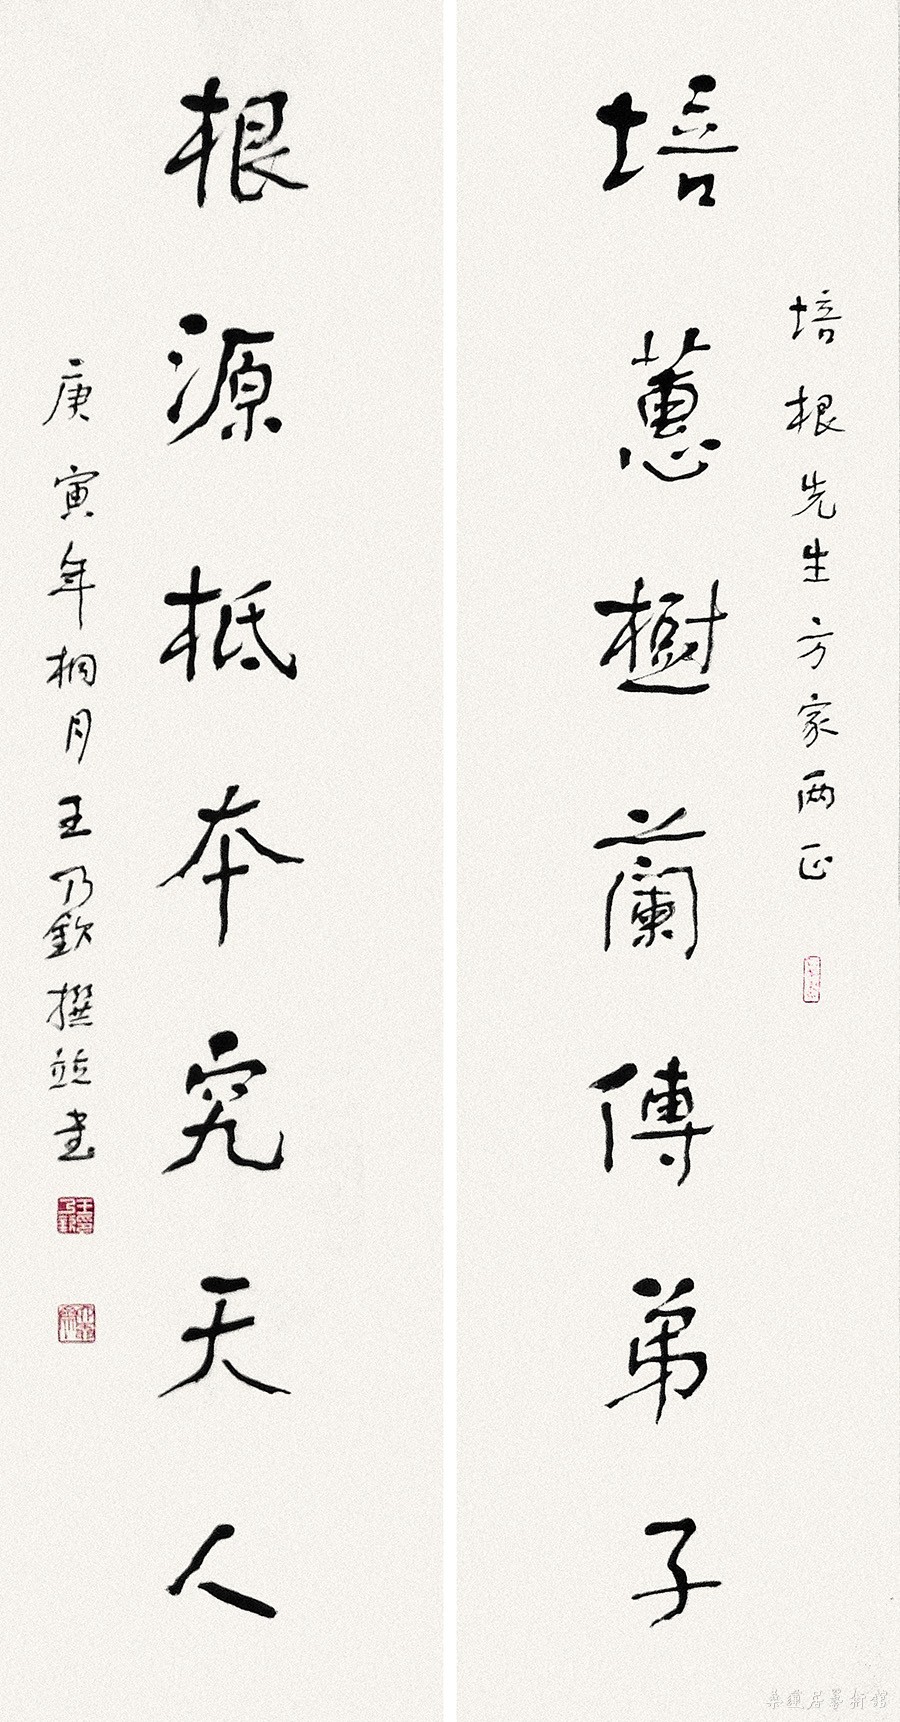 培根先生方家两正
培蕙樹蘭傳弟子
根源柢本究天人
庚寅年桐月王乃欽撰並书